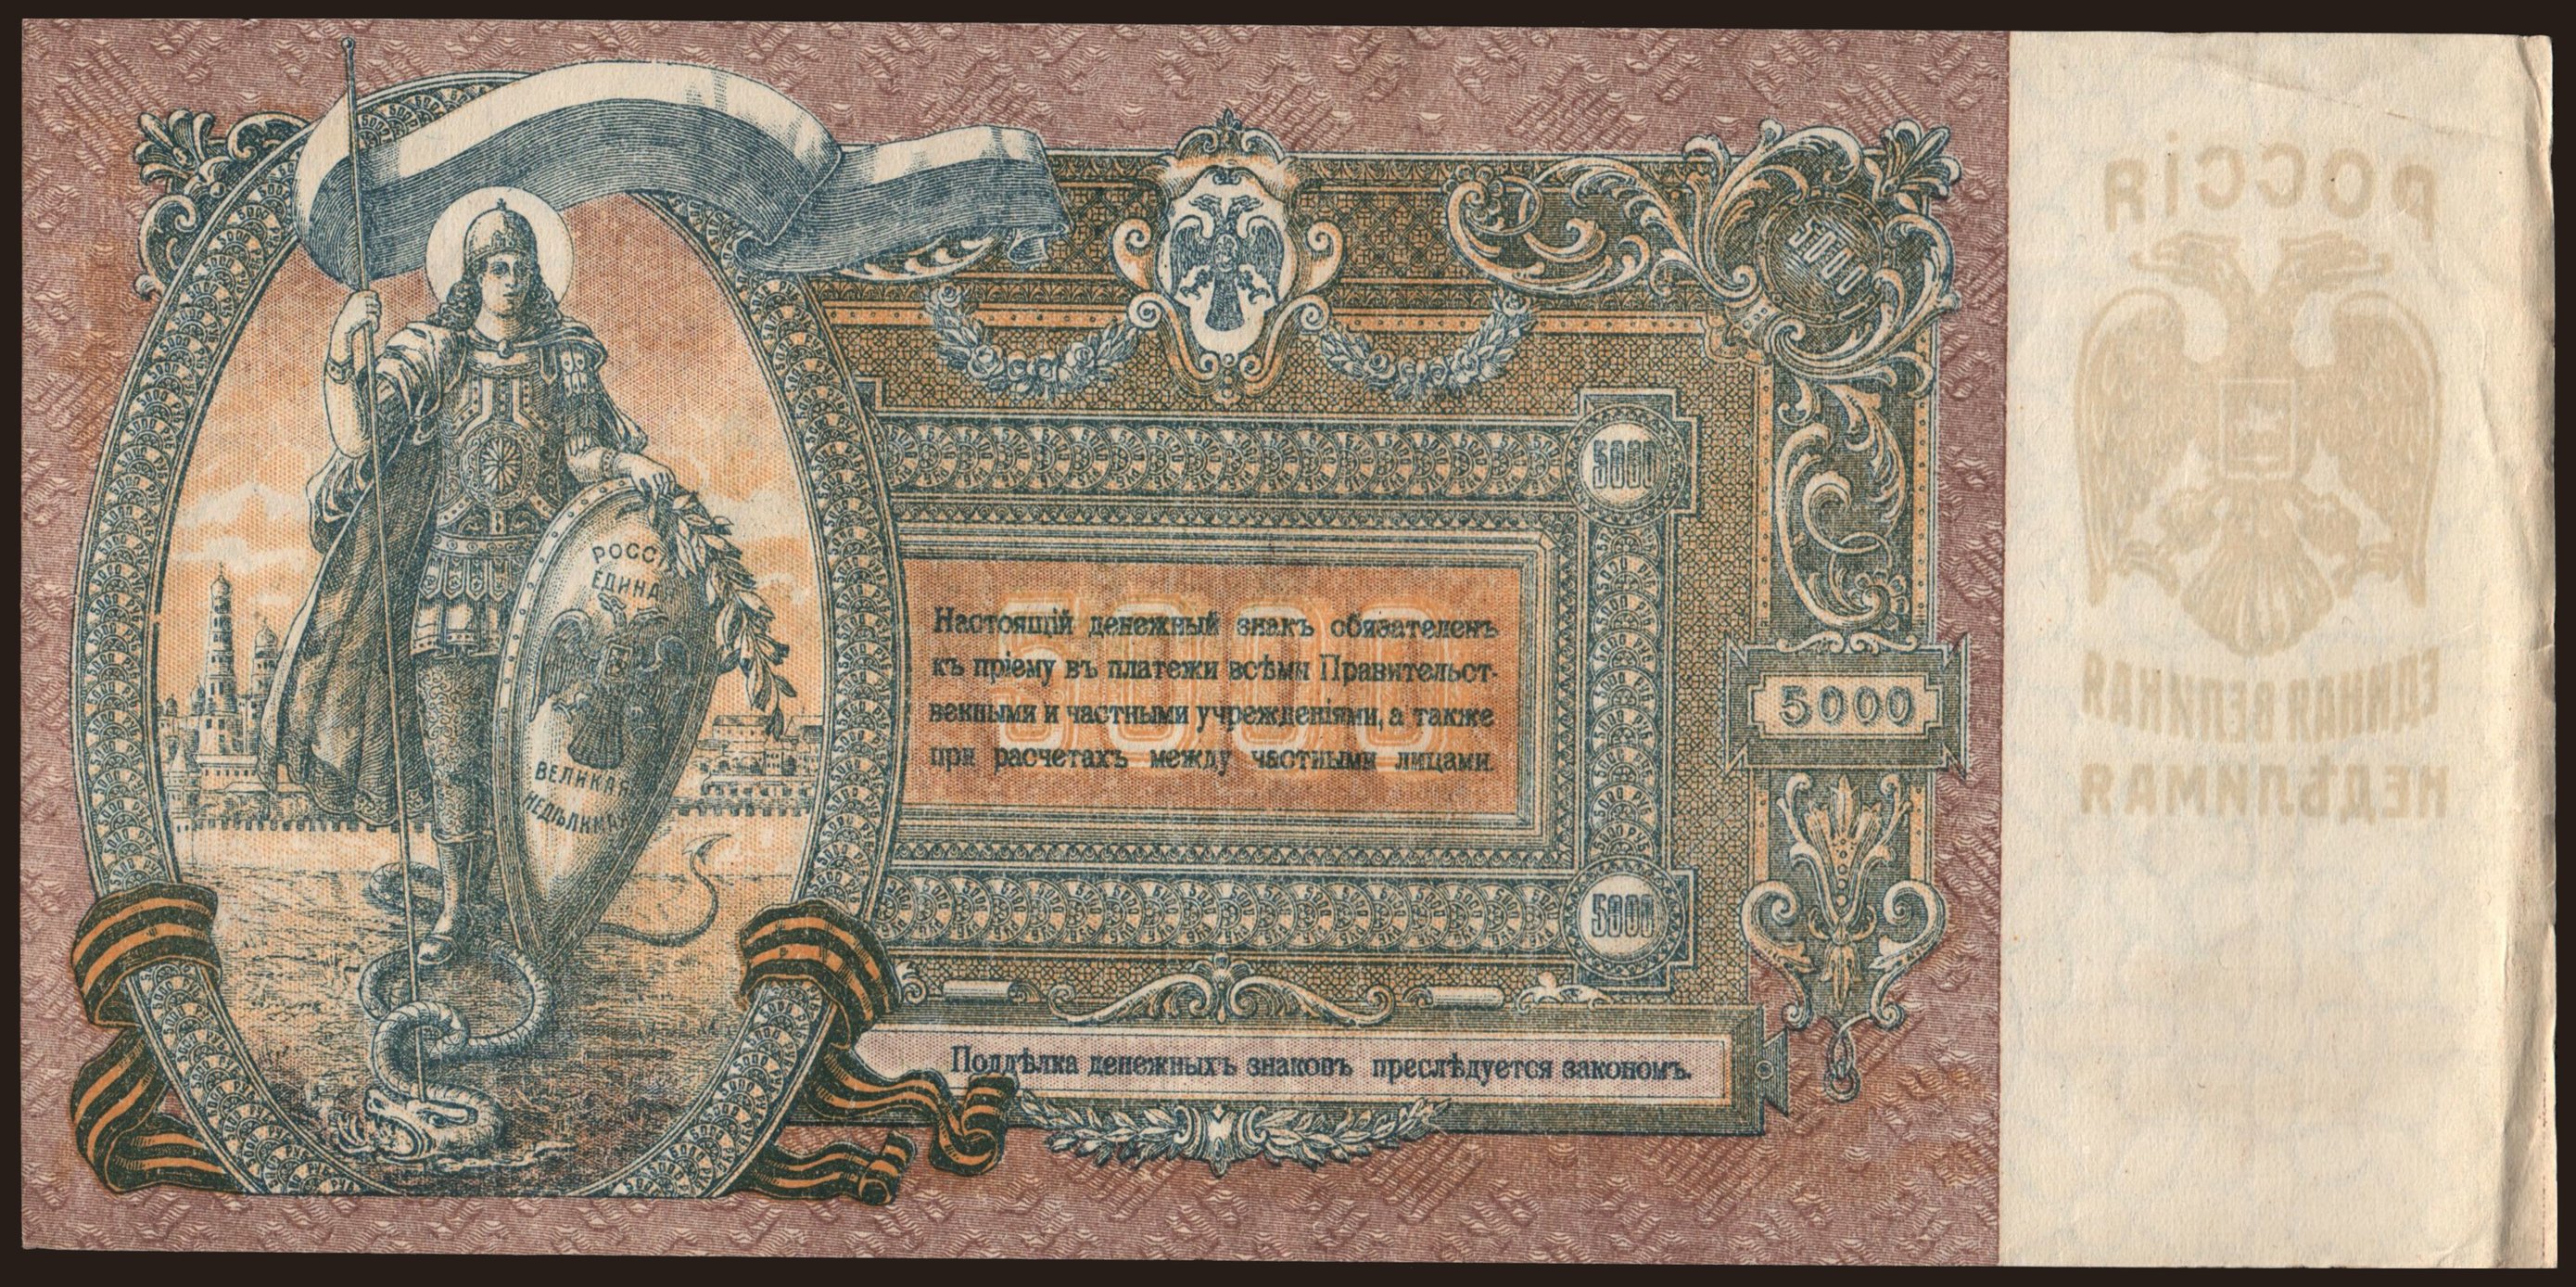 РОССІЯ
ЕДИНАЯ
ВЕЛИКАЯ
НЕДѢЛИМАЯ
5000
5000
5000
Настоящій денежный знакъ обязателенъ
къ пріему въ платежи всѣми Правительст-
венными и частными учрежденіями, а также
при расчетахъ между частными лицами.
5000
5000
5000
Поддѣлка денежныхъ знаковъ преслѣдуется закономъ.
РОССІЯ
ЕДИНАЯ ВЕЛИКАЯ
НЕДѢЛИМАЯ